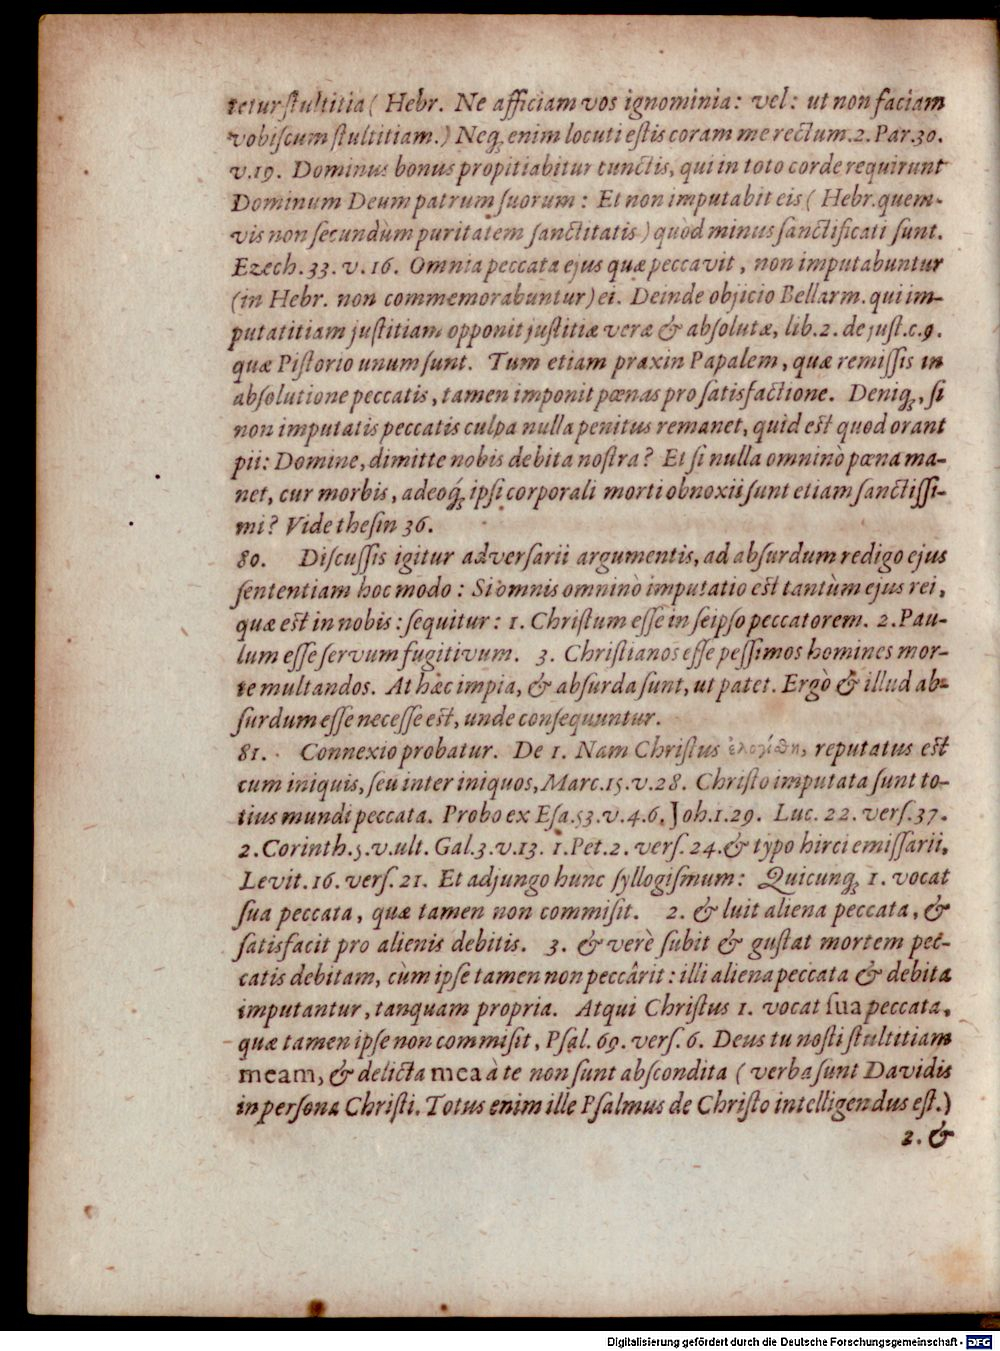 tetur ſtultitia ( Hebr. Ne afficiam vos ignominia: vel: ut non faciam
vobiſcum ſtultitiam.) Neq; enim locuti eſtis coram me rectum. 2. Par. 30.
v. 19. Dominus bonus propitiabitur cunctis, qui in toto corde requirunt
Dominum Deum patrum ſuorum: Et non imputabit eis ( Hebr. quem-
vis non ſecundùm puritatem ſanctitatis) quòd minus ſanctificati ſunt.
Ezech. 33. v. 16. Omnia peccata ejus quæ peccavit, non imputabuntur
(in Hebr. non commemorabuntur) ei. Deinde objicio Bellarm. qui im-
putatitiam juſtitiam opponit juſtitiæ veræ & abſolutæ, lib. 2. de juſt. c. 9.
quæ Piſtorio unum ſunt. Tum etiam praxin Papalem, quæ remiſſis in
abſolutione peccatis, tamen imponit pœnas pro ſatisfactione. Deniq;, ſi
non imputatis peccatis culpa nulla penitus remanet, quid eſt quod orant
pii: Domine, dimitte nobis debita noſtra? Et ſi nulla omninò pœna ma-
net, cur morbis, adeoq́; ipſi corporali morti obnoxii ſunt etiam ſanctiſſi-
mi? Vide theſin 36.
80. Diſcuſſis igitur adverſarii argumentis, ad abſurdum redigo ejus
ſententiam hoc modo: Si omnis omninò imputatio eſt tantùm ejus rei,
quæ eſt in nobis: ſequitur: 1. Chriſtum eſſe in ſeipſo peccatorem. 2. Pau-
lum eſſe ſervum fugitivum. 3. Chriſtianos eſſe peſſimos homines mor-
te multandos. At hæc impia, & abſurda ſunt, ut patet. Ergò & illud ab-
ſurdum eſſe neceſſe eſt, unde conſequuntur.
81. Connexio probatur. De 1. Nam Chriſtus ἐλογίσθη, reputatus eſt
cum iniquis, ſeu inter iniquos, Marc. 15. v. 28. Chriſto imputata ſunt to-
tius mundi peccata. Probo ex Eſa. 53. v. 4. 6. Joh. 1. 29. Luc. 22. verſ. 37.
2. Corinth. 5. v. ult. Gal. 3. v. 13. 1. Pet. 2. verſ. 24. & typo hirci emiſſarii,
Levit. 16. verſ. 21. Et adjungo hunc ſyllogiſmum: Quicunq; 1. vocat
ſua peccata, quæ tamen non commiſit. 2. & luit aliena peccata, &
ſatisfacit pro alienis debitis. 3. & verè ſubit & guſtat mortem pec-
catis debitam, cùm ipſe tamen non peccârit: illi aliena peccata & debita
imputantur, tanquam propria. Atqui Chriſtus 1. vocat ſua peccata,
quæ tamen ipſe non commiſit, Pſal. 69. verſ. 6. Deus tu noſti ſtultitiam
meam, & delicta mea à te non ſunt abſcondita ( verba ſunt Davidis
in perſona Chriſti. Totus enim ille Pſalmus de Chriſto intelligendus eſt.)
2. &
Digitalisierung gefördert durch die Deutsche Forschungsgemeinschaft - DFG